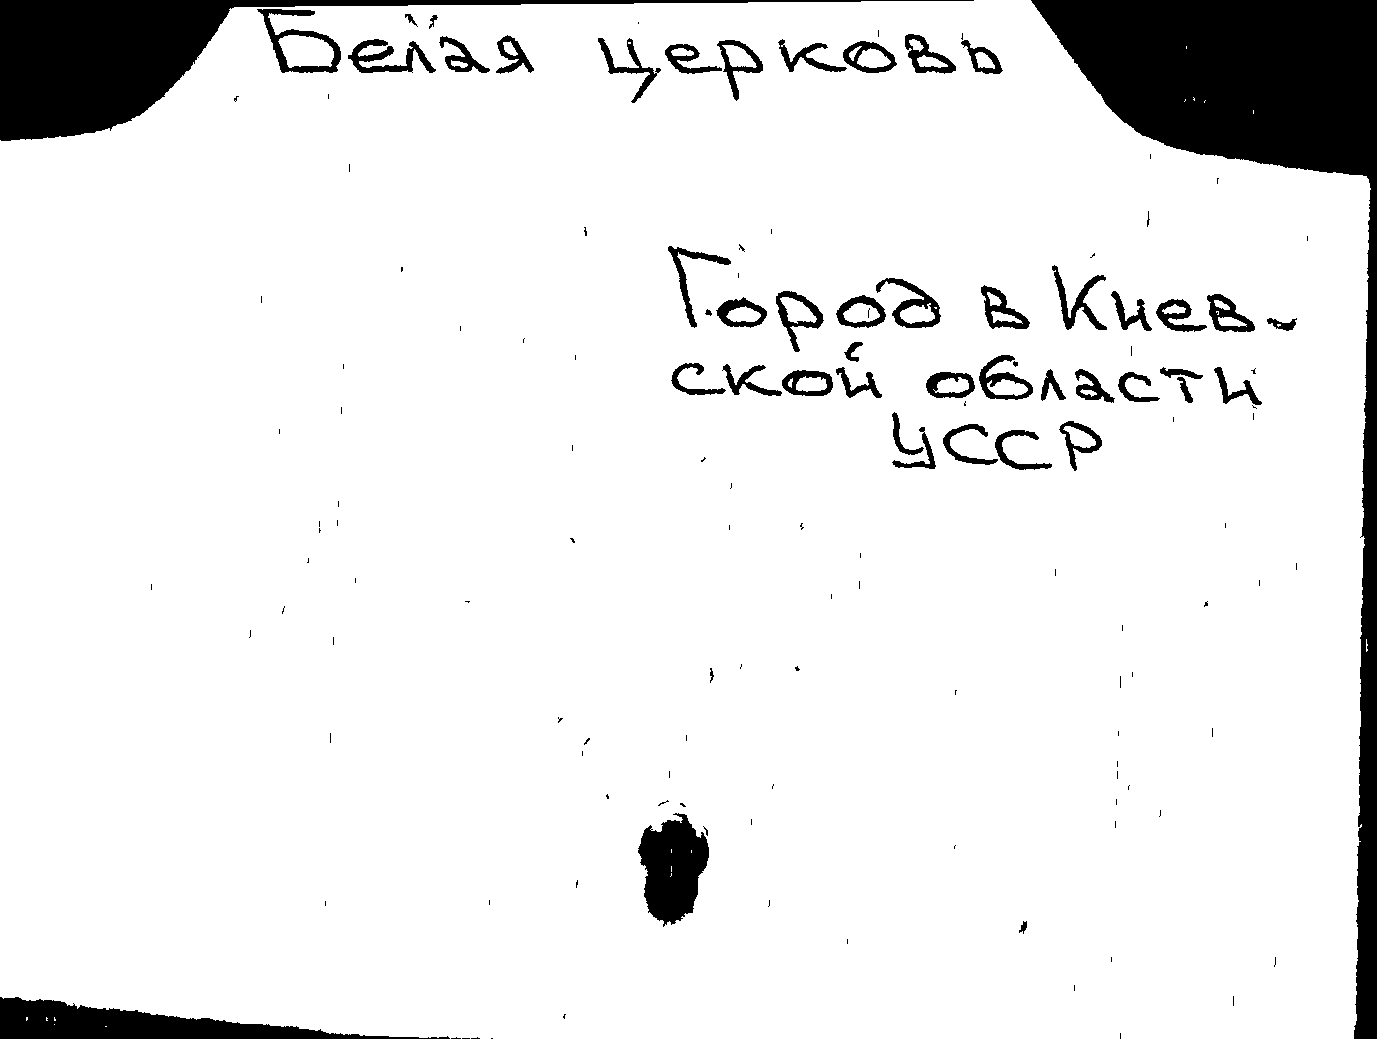 Белая церковь
Город в Киев-
ской области
УССР